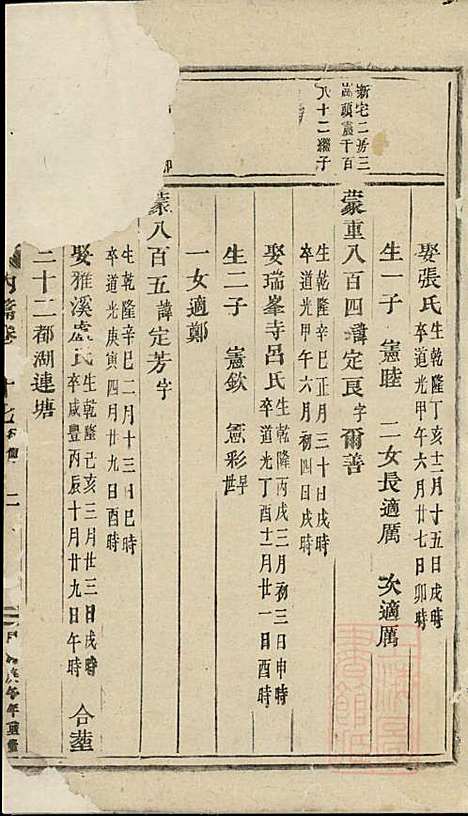 新宅二房三
萬頭憲千百
八十二繼子
娶張氏生乾隆丁亥十二月十五日戌時
卒道光甲午六月廿七日卯時
生一子 憲睦 二女長適厲 次適厲
蒙重八百四諱定良字爾善
生乾隆辛巳正月三十日戌時
卒道光甲午六月初四日戌時
娶瑞峯寺呂氏生乾隆丙戌三月初三日申時
卒道光丁酉十二月廿一日酉時
生二子 憲欽 憲彩早世
一女適鄭
蒙八百五諱定芳字
生乾隆辛巳二月十三日巳時
卒道光庚寅四月廿九日酉時
娶雅溪盧氏生乾隆己亥三月廿三日戌時
卒咸豐丙辰十月廿九日午時 合塟
三十二都湖連塘
內 卷 十 二
年重